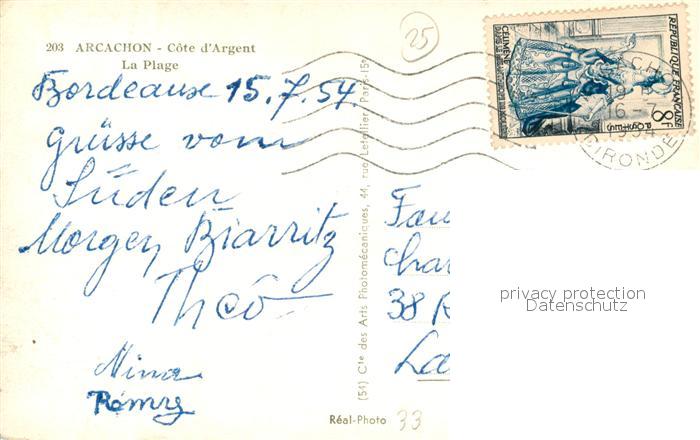 203 ARCACHON - Côte d'Argent
La Plage
25
Bordeaux 15.7.54.
Grüsse vom
Süden
Morgen Biarritz
Theo
Nina
Rémy
(54) Cie des Arts Photomécaniques, 44, rue Letellier, Paris-15e
Réal-Photo
33
REPUBLIQUE FRANÇAISE
8F
POSTES
CELIMENE
16-7
GIRONDE
Fam
Char
38 R
La
privacy protection
Datenschutz